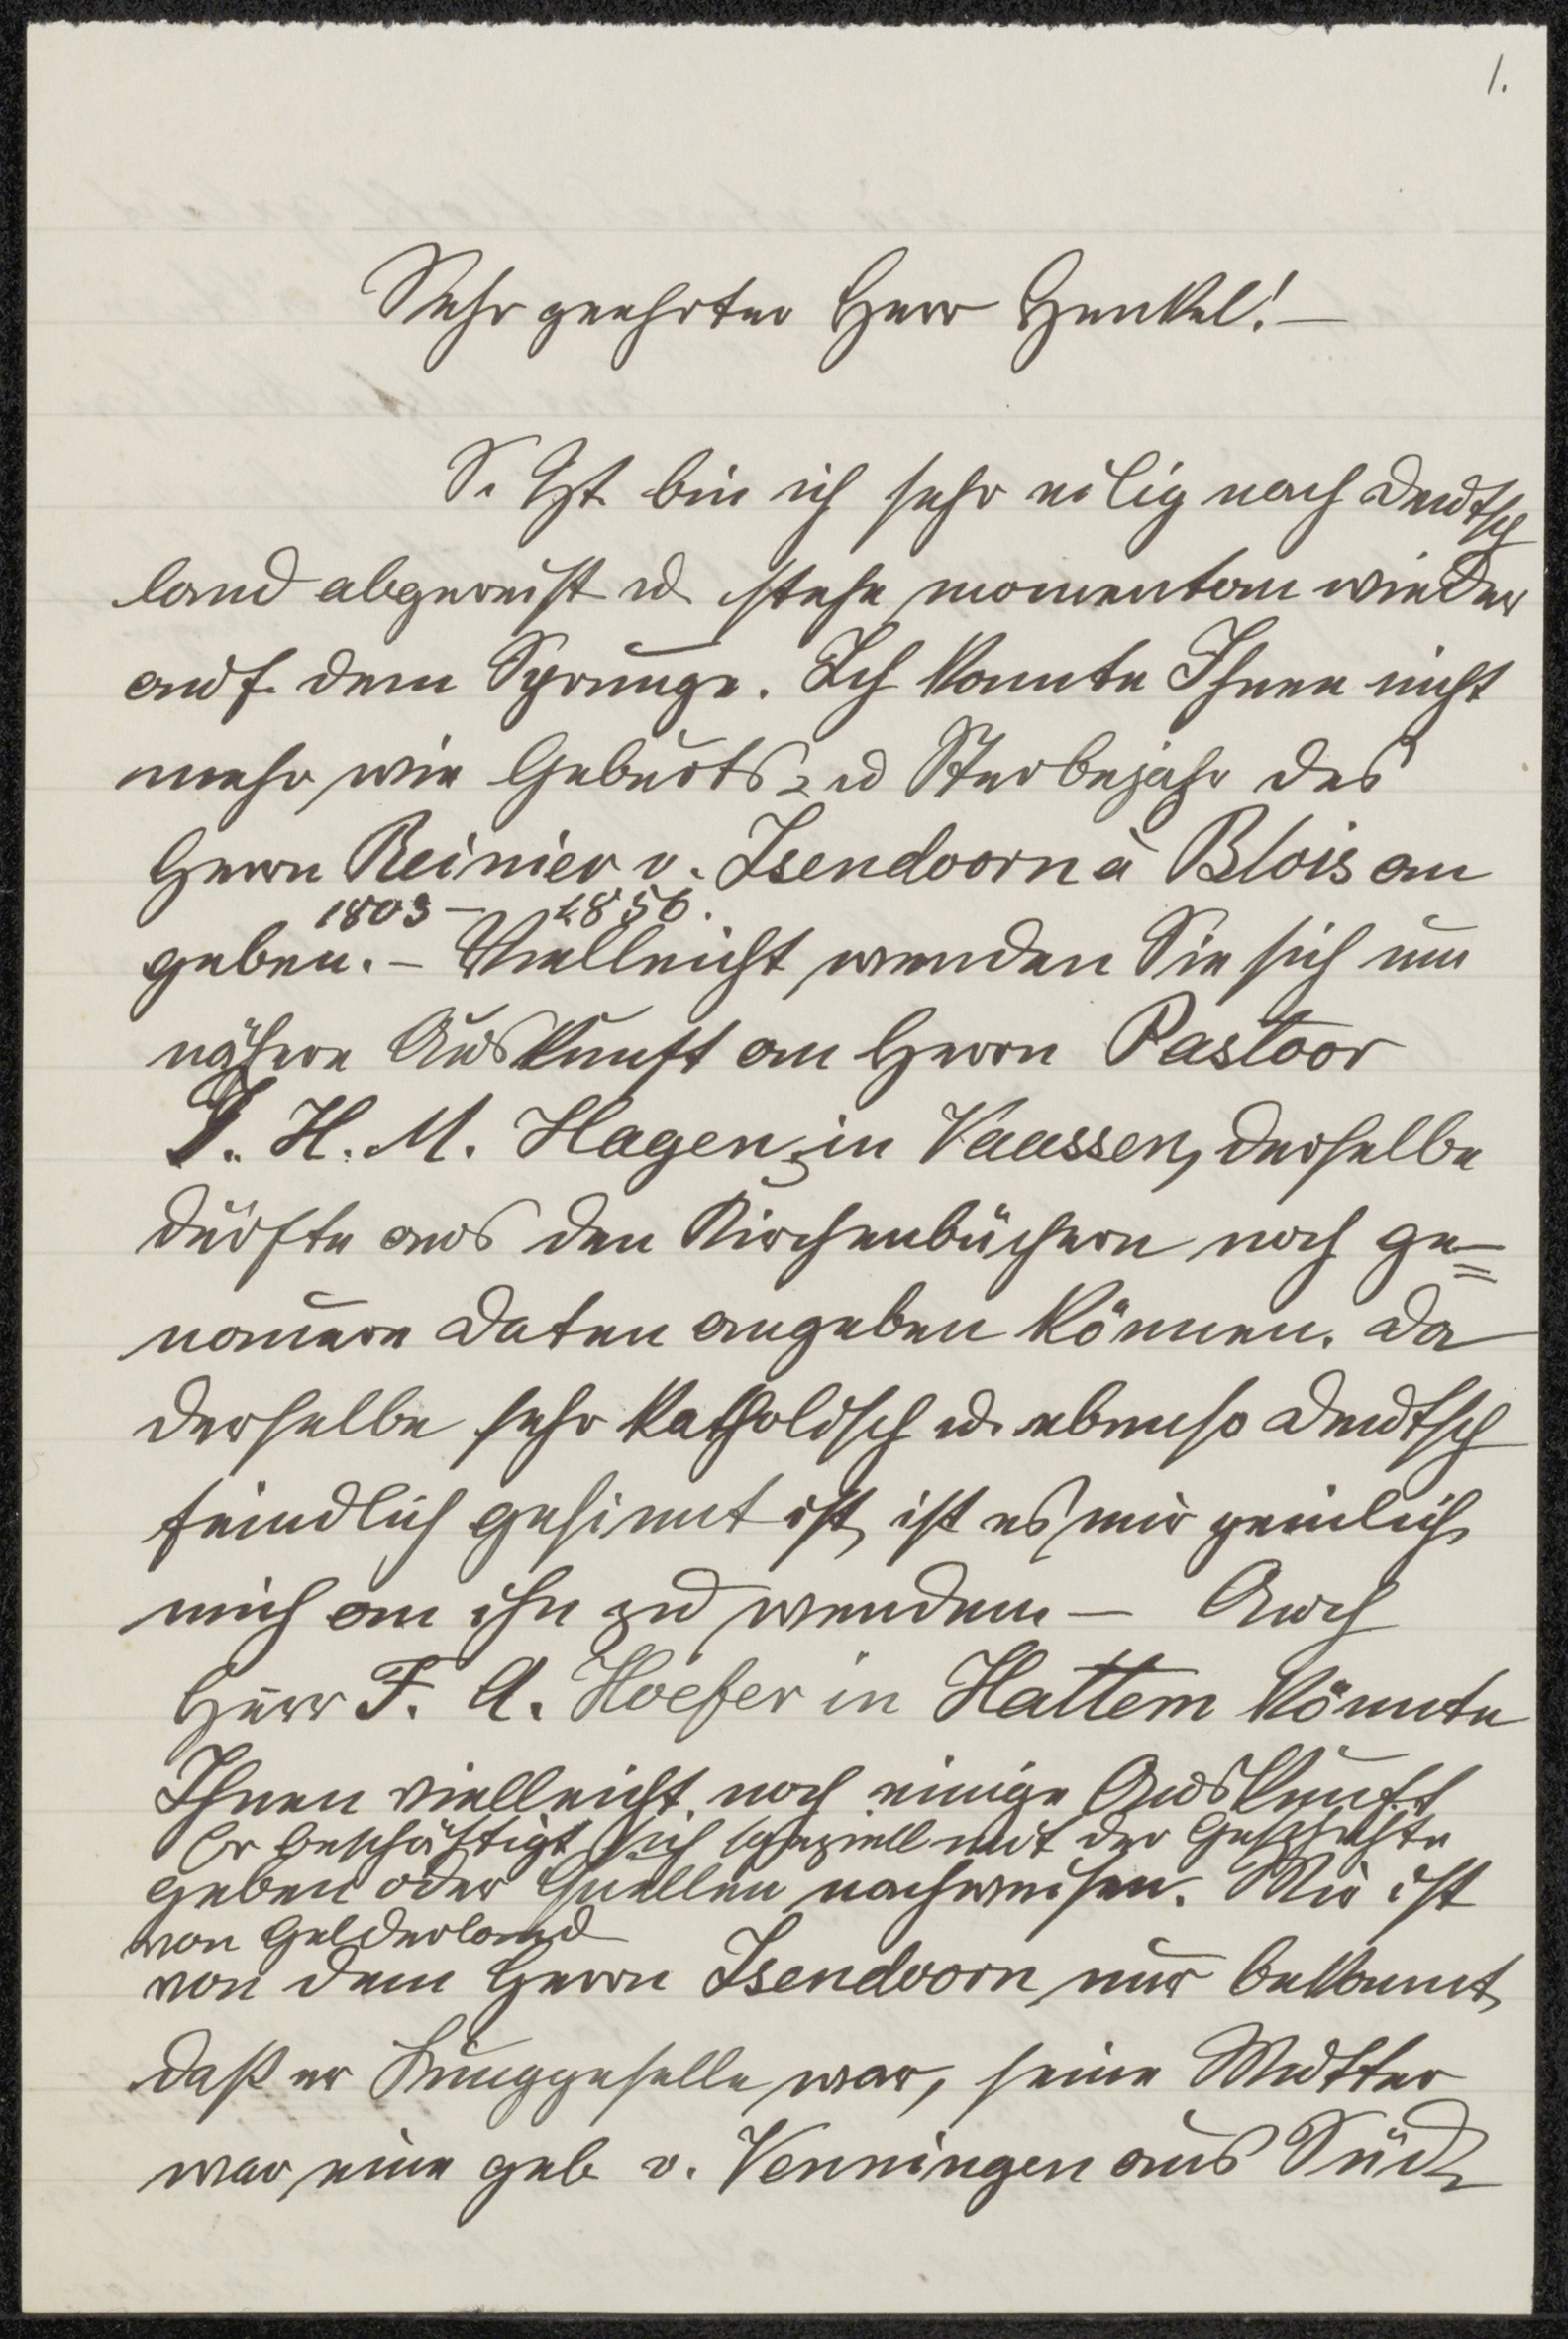 1.
Sehr geehrter Herr Henkel! —
S. Zt. bin ich sehr eilig nach Deutsch
land abgereist u. stehe momentan wieder
auf dem Sprunge. Ich konnte Ihnen nicht
mehr wie Geburts- u Sterbejahr des
Herrn Reinier v. Isendoorn à Blois an
1803 — 1856.
geben. — Vielleicht wenden Sie sich um
nähere Auskunft an Herrn Pastoor
T. H. M. Hagen, in Vaassen, derselbe
dürfte aus den Kirchenbüchern noch ge=
nauere Daten angeben können. Da
derselbe sehr katholisch u. ebenso deutsch
feindlich gesinnt ist, ist es mir peinlich
mich an ihn zu wenden — Auch
Herr F. A. Hoefer in Hattem könnte
Ihnen vielleicht noch einige Auskunft
Er beschäftigt sich speziell mit der Geschichte
geben oder Quellen nachweisen. Mir ist
von Gelderland
von dem Herrn Isendoorn nur bekannt,
daß er Junggeselle war, seine Mutter
war eine geb v. Venningen aus Süd-